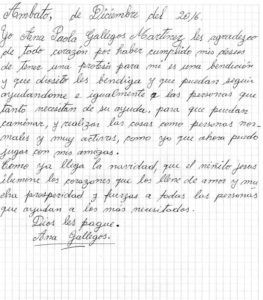 Ambato, de Diciembre del 2016.
Yo Ana Paola Gallegos Martinez les agradezco
de todo corazón por haber cumplido mis deseos
de tener una protesis para mi es una bendición
y que diosito les bendiga y que puedan seguir
ayudandome e igualmente a las personas que
tanto necesitan de su ayuda, para que puedan
caminar, y realizar las cosas como personas nor-
males y muy activas, como yo que ahora puedo
jugar con mis amigas.
Como ya llega la navidad, que el niñito jesus
ilumine los corazones que los llene de amor y mu
cha prosperidad y fuerzas a todas las personas
que ayudan a los más necesitados.
Dios les pague.
Ana Gallegos.